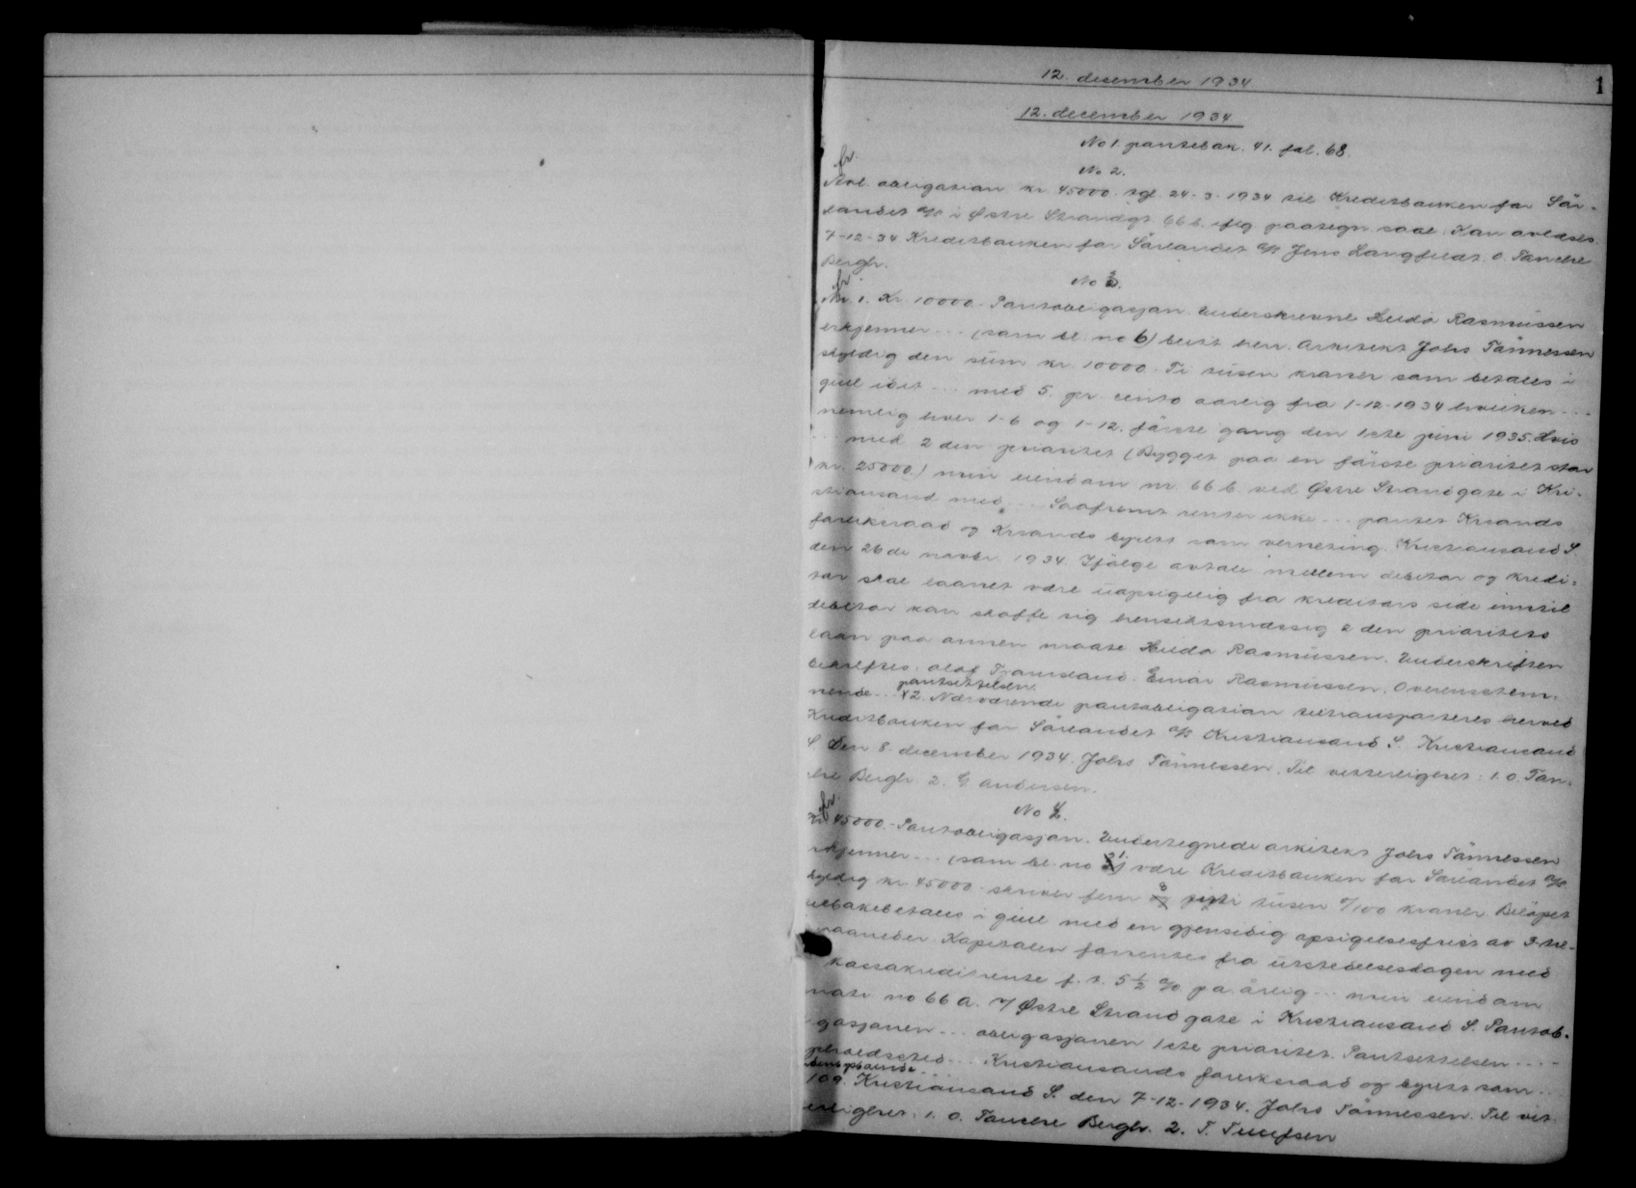 12. december 1934
1
12. december 1934
No 1. pantebok. 41. fol. 68.
fr.
No 2.
Avl. obligasion kr. 45000. tgl. 24-3-1934 til Kreditbanken for Sör-
landet a/s i Østre Strandgt 66 b. iflg paategn saal: Kan avlæses
7-12-34 Kreditbanken for Sörlandet a/s Jens Langfeldt. O. Tanche
Bergh.
fr
No 3.
Nr. 1. Kr. 10000. Pantobligasjon. Underskrevne Hilda Rasmussen
erkjenner ... (som bl. no 6) herr. Arkitekt Johs Tönnessen
skyldig den sum kr. 10000. Ti tusen kroner som betales i
gull idet ... med 5. pr. cento aarlig fra 1-12-1934 hvilken ...
nemlig hver 1-6 og 1-12. förste gang den 1ste juni 1935. Hvis
... med 2 den prioritet (Bygget paa en förste prioritet stor
kr. 25000.) min eiendom nr. 66 b. ved Østre Strandgate i Kri-
stiansand med ... Saafremt renter ikke ... pantet Krsands
forliksraad og Krsands byrett som verneting. Kristiansand S.
den 26 de novbr. 1934. Ifölge avtale mellem debitor og kredi-
tor skal laanet være uopsigelig fra kreditors side inntil
debitor kan skaffe sig hensiktsmæssig 2 den prioritets
laan paa annen maate Hilda Rasmussen. Underskriften
bekreftes. Olaf Tjomsland. Einar Rasmussen. Overensstem-
pantsettelsen.
nende ... x 2. Nærværende pantobligasion transporteres herved
Kreditbanken for Sörlandet a/s Kristiansand S. Kristiansand
S. Den 8. december 1934. Johs Tönnessen. Til vitterlighet: 1. O. Tan-
che Bergh. 2. G Andersen.
fr.
No 4.
Kr. 45000. Pantobligasjon. Undertegnede arkitekt Johs Tönnessen
erkjenner ... (som bl. no 21) være Kreditbanken for Sörlandet a/s
skyldig kr. 45000. skriver fem og firti tusen 0/100 kroner. Belöpet
tilbakebetales i gull med en gjensidig opsigelsesfrist av 3 tre-
maaneder. Kapitalen forrentes fra utstedelsesdagen med
kassakreditrente f. t. 5 1/2 % pa. årlig ... min eiendom
matr no 66 a. i Østre Strandgate i Kristiansand S. Pantob-
gasjonen ... obligasjonen 1ste prioritet. Pantsettelsen ...
opholdssted ... Kristiansands forliksraad og byrett som ...
109. Kristiansand S. den 7-12-1934. Johs Tönnessen. Til vit-
erlighet: 1. O. Tanche Bergh. 2. T. Tellefsen